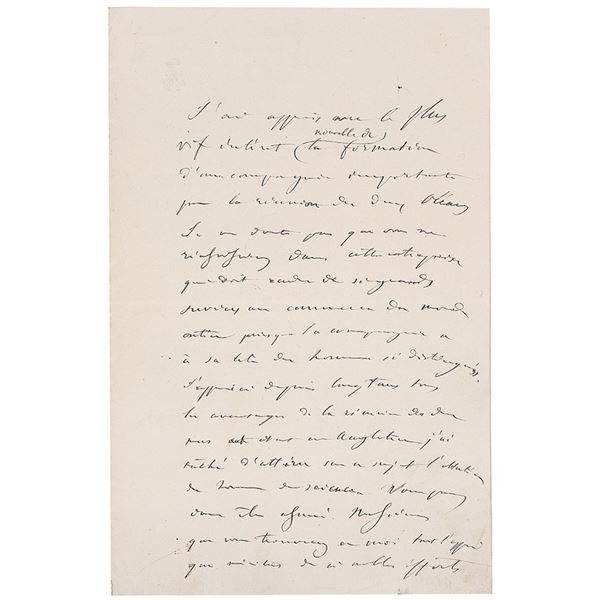 J'ai appris avec le plus
vif intérêt (la nouvelle de) la formation
d'une compagnie importante
pour la réunion des deux Océans
Je ne doute pas que vous ne
réussissiez dans cette entreprise
qui doit rendre de si grands
services au commerce du monde
entier puisque la compagnie a
à sa tête des hommes si distingués.
J'apprécie depuis longtemps tous
les avantages de la réunion des deux
mers et étant en Angleterre j'ai
tâché d'attirer sur ce sujet l'attention
des hommes de science. Vous pouvez
donc être assuré Messieurs
que vous trouverez en moi tout l'appui
que méritent de si nobles efforts